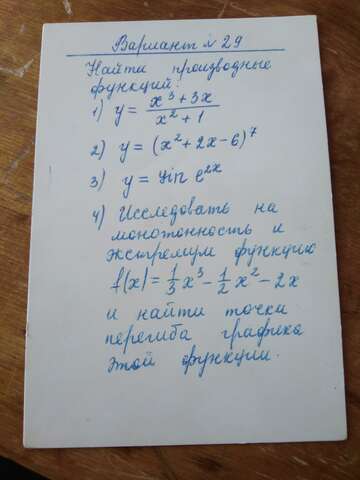 Вариант № 29
Найти производные
функций:
1) y = (x³ + 3x)/(x² + 1)
2) y = (x² + 2x - 6)⁷
3) y = sin e²ˣ
4) Исследовать на
монотонность и
экстремум функцию
f(x) = 1/3 x³ - 1/2 x² - 2x
и найти точки
перегиба графика
этой функции.